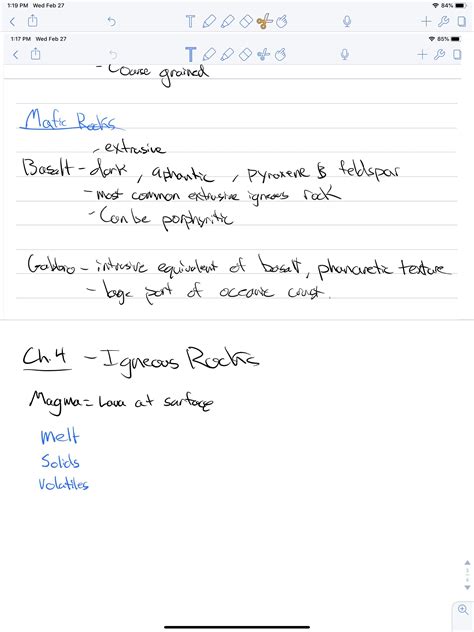 1:19 PM Wed Feb 27 84%
1:17 PM Wed Feb 27 85%
- Coarse grained
Mafic Rocks
- extrusive
Basalt - dark, aphantic, pyroxene & feldspar
- most common extrusive igneous rock
- Can be porphyritic
Gabbro - intrusive equivalent of basalt, phanaretic texture
- large part of oceanic crust.
Ch. 4 - Igneous Rocks
Magma = Lava at surface
Melt
Solids
Volatiles